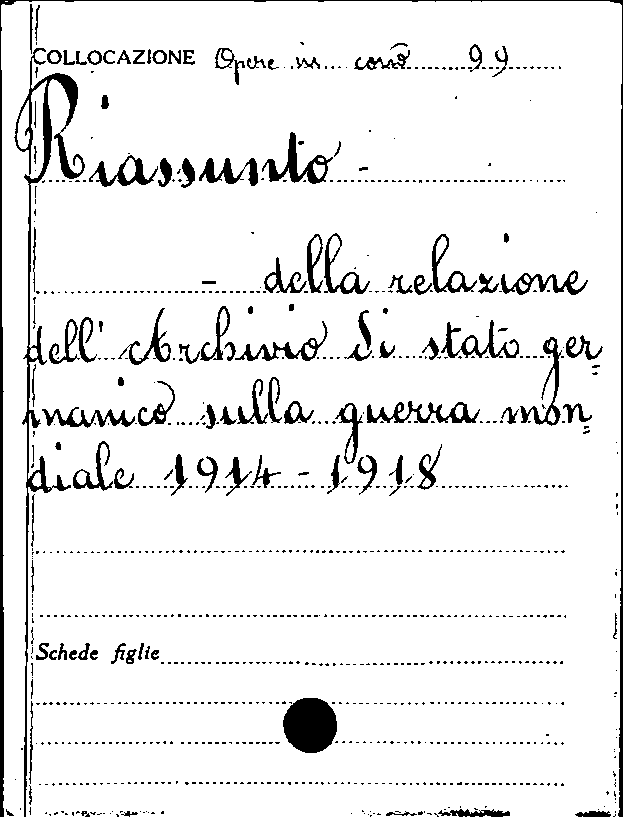 COLLOCAZIONE Opere in 99
Riassunto -
- della relazione
dell' Archivio di stato ger=
manico sulla guerra mon=
diale 1914 - 1918
Schede figlie